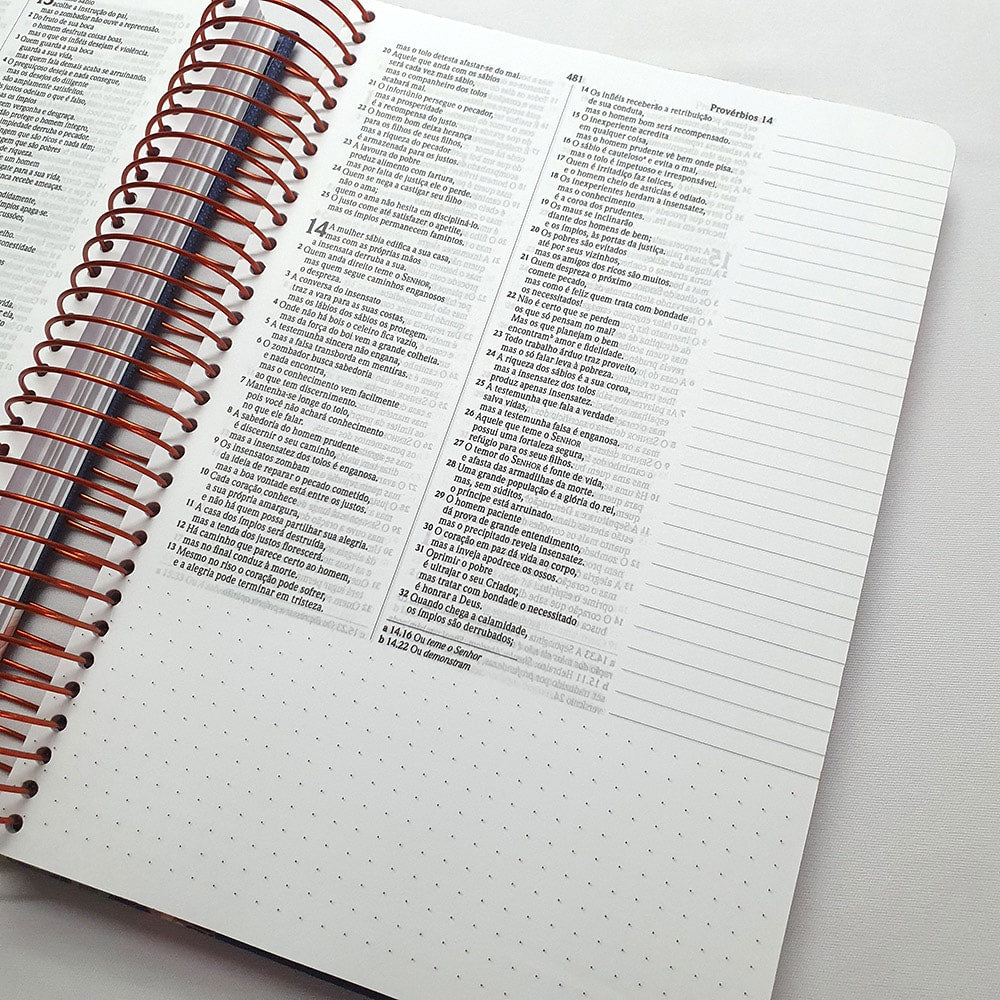 escolhe a instrução do pai,
mas o zombador não ouve a repreensão.
2 Do fruto de sua boca
o homem desfruta coisas boas,
mas o que os infiéis desejam é violência.
3 Quem guarda a sua boca
guarda a sua vida,
mas quem fala demais acaba se arruinando.
4 O preguiçoso deseja e nada consegue,
mas os desejos do diligente
são amplamente satisfeitos.
justos odeiam o que é falso,
os ímpios
vergonha e desgraça.
protege o homem íntegro,
impiedade derruba o pecador.
que são ricos e nada têm;
que são pobres
riqueza.
um homem
gate para a sua vida,
nunca recebe ameaças.
mas o tolo detesta afastar-se do mal.
20 Aquele que anda com os sábios
será cada vez mais sábio,
mas o companheiro dos tolos
acabará mal.
21 O infortúnio persegue o pecador,
mas a prosperidade
é a recompensa do justo.
22 O homem bom deixa herança
para os filhos de seus filhos,
mas a riqueza do pecador
é armazenada para os justos.
23 A lavoura do pobre
produz alimento com fartura,
mas por falta de justiça ele o perde.
24 Quem se nega a castigar seu filho
não o ama;
quem o ama não hesita em discipliná-lo.
25 O justo come até satisfazer o apetite,
mas os ímpios permanecem famintos.
14 A mulher sábia edifica a sua casa,
mas com as próprias mãos
a insensata derruba a sua.
2 Quem anda direito teme o SENHOR,
mas quem segue caminhos enganosos
o despreza.
3 A conversa do insensato
traz a vara para as suas costas,
mas os lábios dos sábios os protegem.
4 Onde não há bois o celeiro fica vazio,
mas da força do boi vem a grande colheita.
5 A testemunha sincera não engana,
mas a falsa transborda em mentiras.
6 O zombador busca sabedoria
e nada encontra,
mas o conhecimento vem facilmente
ao que tem discernimento.
7 Mantenha-se longe do tolo,
pois você não achará conhecimento
no que ele falar.
8 A sabedoria do homem prudente
é discernir o seu caminho,
mas a insensatez dos tolos é enganosa.
9 Os insensatos zombam
da ideia de reparar o pecado cometido,
mas a boa vontade está entre os justos.
10 Cada coração conhece
a sua própria amargura,
e não há quem possa partilhar sua alegria.
11 A casa dos ímpios será destruída,
mas a tenda dos justos florescerá.
12 Há caminho que parece certo ao homem,
mas no final conduz à morte.
13 Mesmo no riso o coração pode sofrer,
e a alegria pode terminar em tristeza.
481
Provérbios 14
14 Os infiéis receberão a retribuição
de sua conduta,
mas o homem bom será recompensado.
15 O inexperiente acredita
em qualquer coisa,
mas o homem prudente vê bem onde pisa.
16 O sábio é cauteloso a e evita o mal,
mas o tolo é impetuoso e irresponsável.
17 Quem é irritadiço faz tolices,
e o homem cheio de astúcias é odiado.
18 Os inexperientes herdam a insensatez,
mas o conhecimento
é a coroa dos prudentes.
19 Os maus se inclinarão
diante dos homens de bem;
e os ímpios, às portas da justiça.
20 Os pobres são evitados
até por seus vizinhos,
mas os amigos dos ricos são muitos.
21 Quem despreza o próximo
comete pecado,
mas como é feliz quem trata com bondade
os necessitados!
22 Não é certo que se perdem
os que só pensam no mal?
Mas os que planejam o bem
encontram b amor e fidelidade.
23 Todo trabalho árduo traz proveito,
mas o só falar leva à pobreza.
24 A riqueza dos sábios é a sua coroa,
mas a insensatez dos tolos
produz apenas insensatez.
25 A testemunha que fala a verdade
salva vidas,
mas a testemunha falsa é enganosa.
26 Aquele que teme o SENHOR
possui uma fortaleza segura,
refúgio para os seus filhos.
27 O temor do SENHOR é fonte de vida,
e afasta das armadilhas da morte.
28 Uma grande população é a glória do rei,
mas, sem súditos,
o príncipe está arruinado.
29 O homem paciente
dá prova de grande entendimento,
mas o precipitado revela insensatez.
30 O coração em paz dá vida ao corpo,
mas a inveja apodrece os ossos.
31 Oprimir o pobre
é ultrajar o seu Criador,
mas tratar com bondade o necessitado
é honrar a Deus.
32 Quando chega a calamidade,
os ímpios são derrubados;
a 14.16 Ou teme o Senhor
b 14.22 Ou demonstram